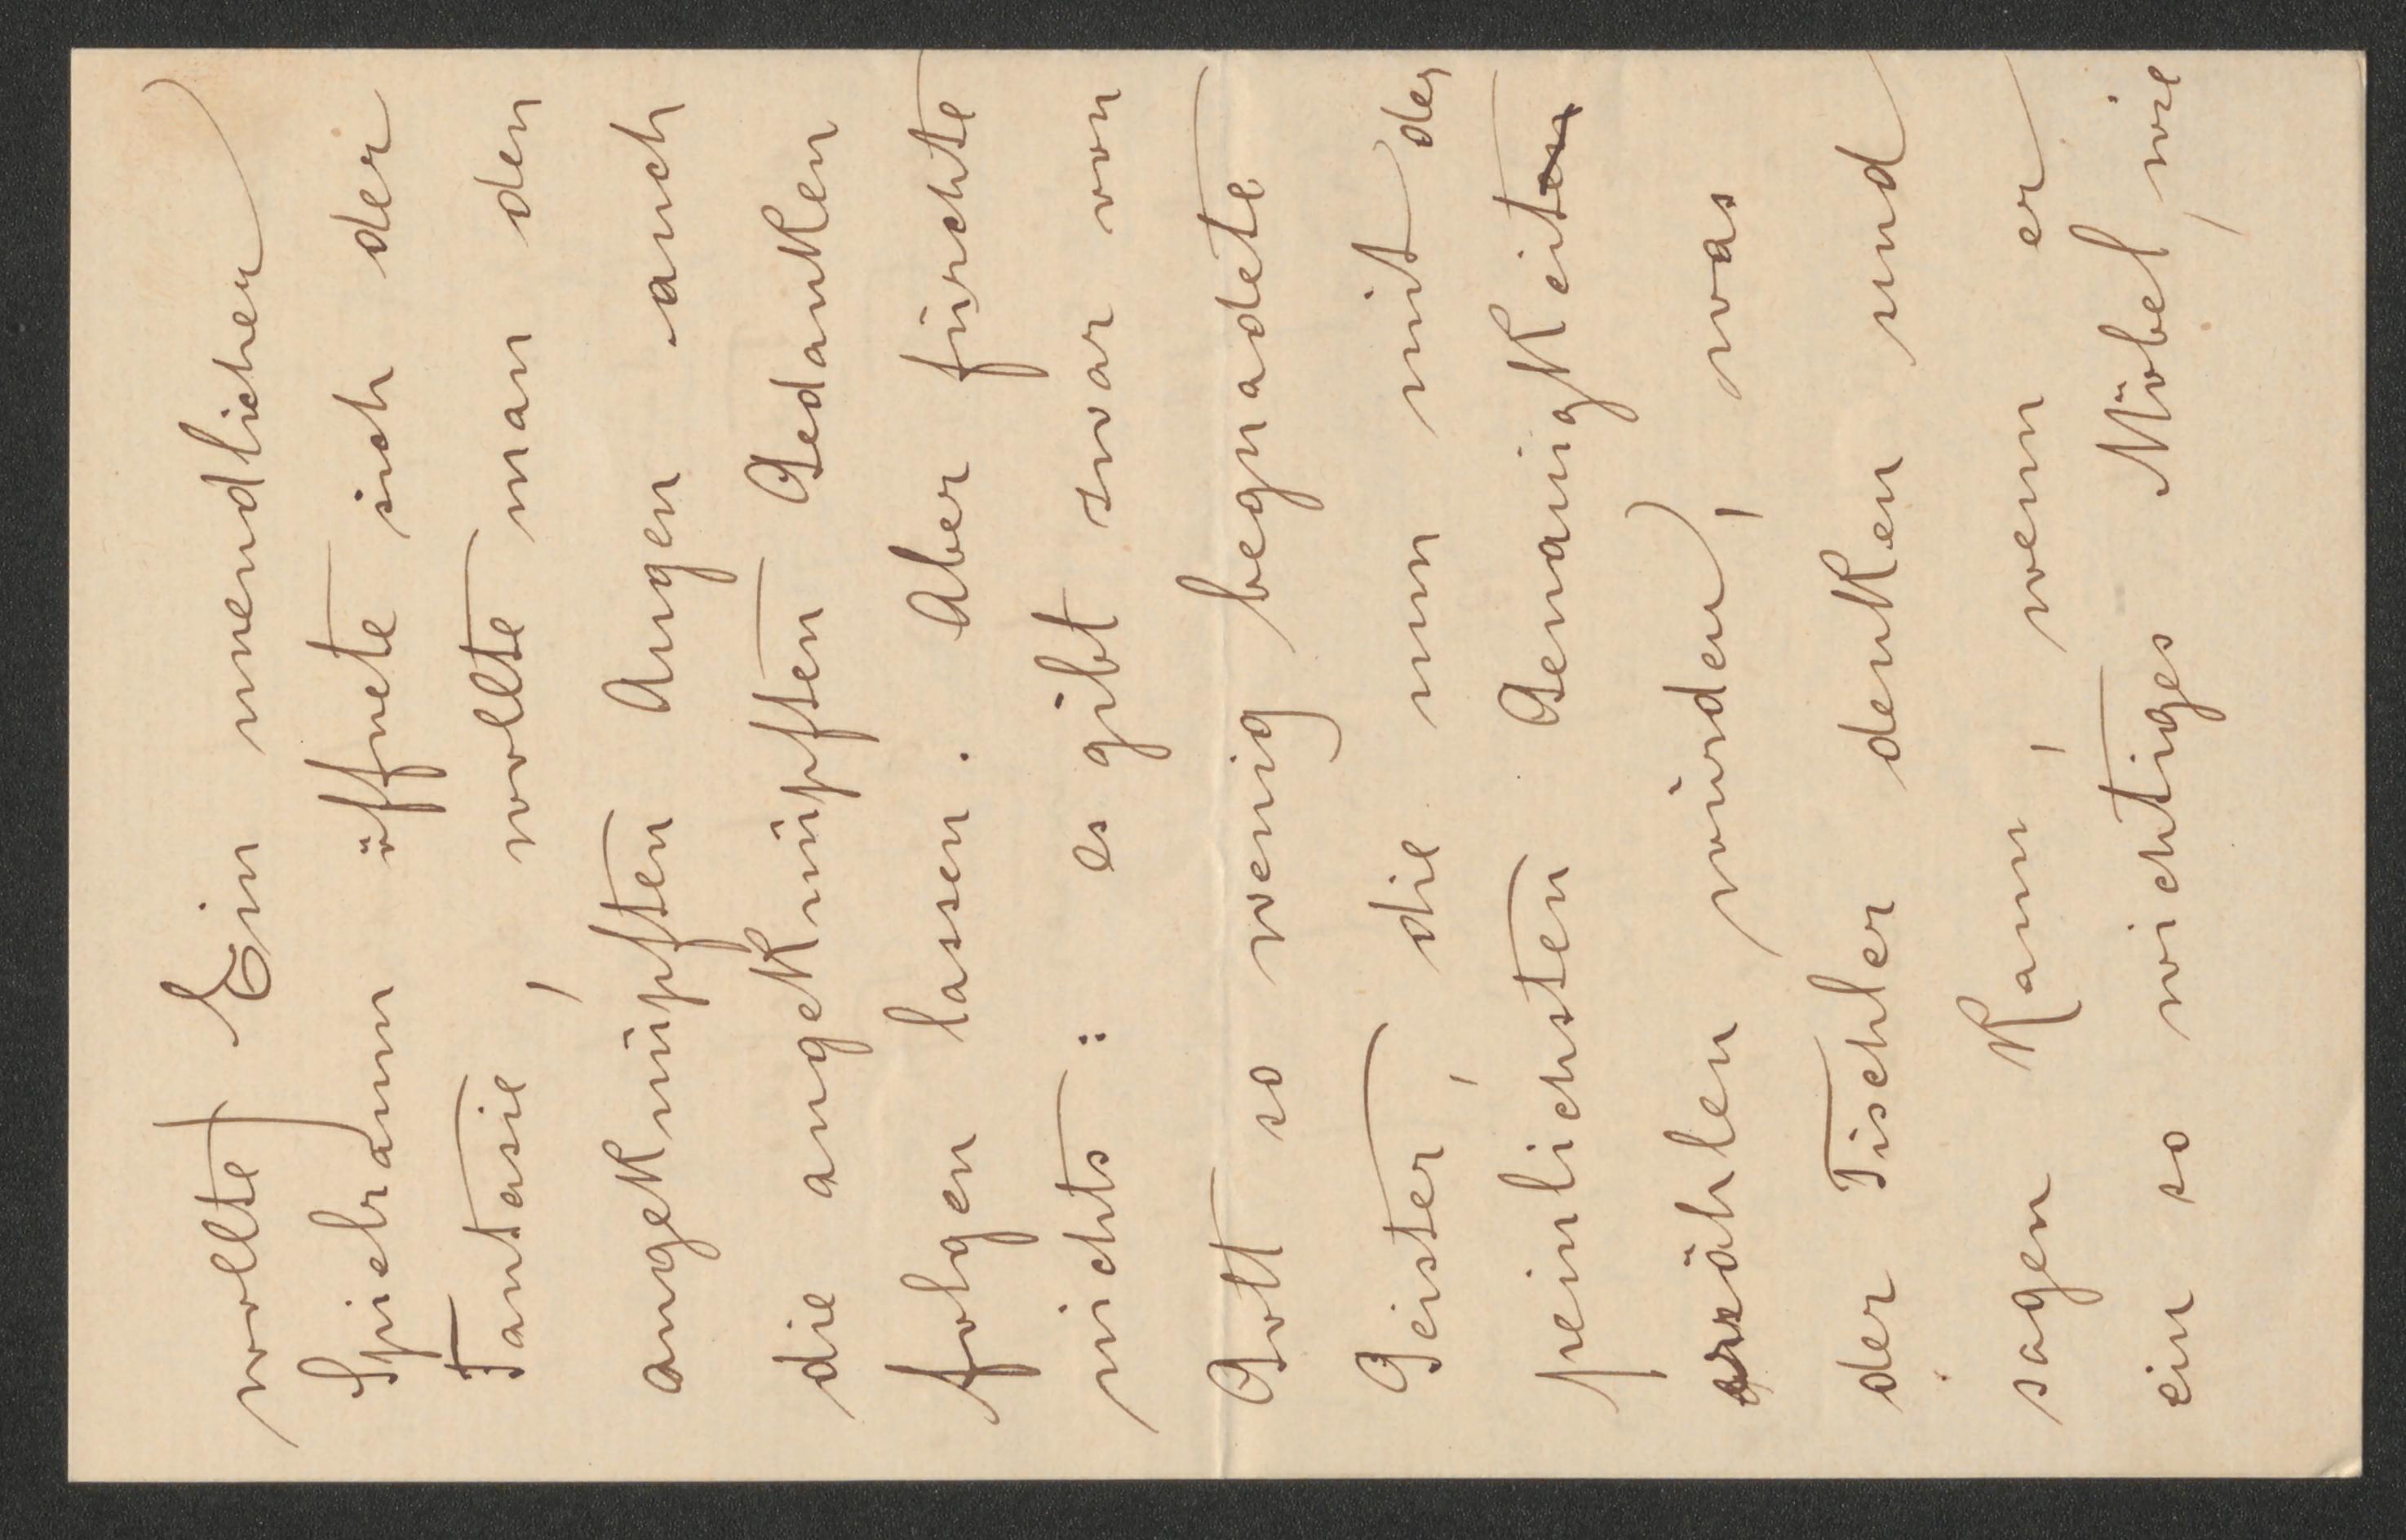 wollte) Ein unendlicher
Spielraum öffnete sich der
Fantasie, wollte man den
angeknüpften Augen auch
die angeknüpften Gedanken
folgen lassen. Aber fürchte
nichts: es gibt zwar von
Gott so wenig begnadete
Geister, die nun mit der
peinlichsten Genauigkeit
erzählen würden, was
der Tischler denken und
sagen kann, wenn er
ein so wichtiges Möbel, wie